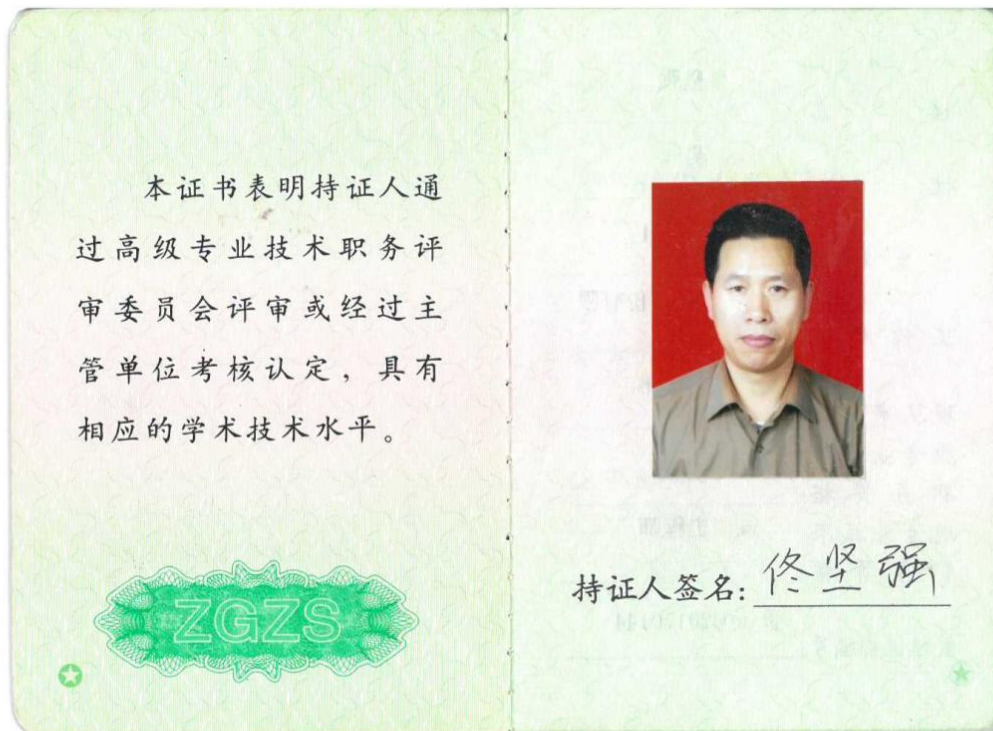 本证书表明持证人通
过高级专业技术职务评
审委员会评审或经过主
管单位考核认定，具有
相应的学术技术水平。
ZGZS
持证人签名：佟坚强